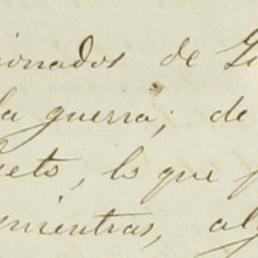 ionados de
la guerra; de
eto, lo que
mientras, alg